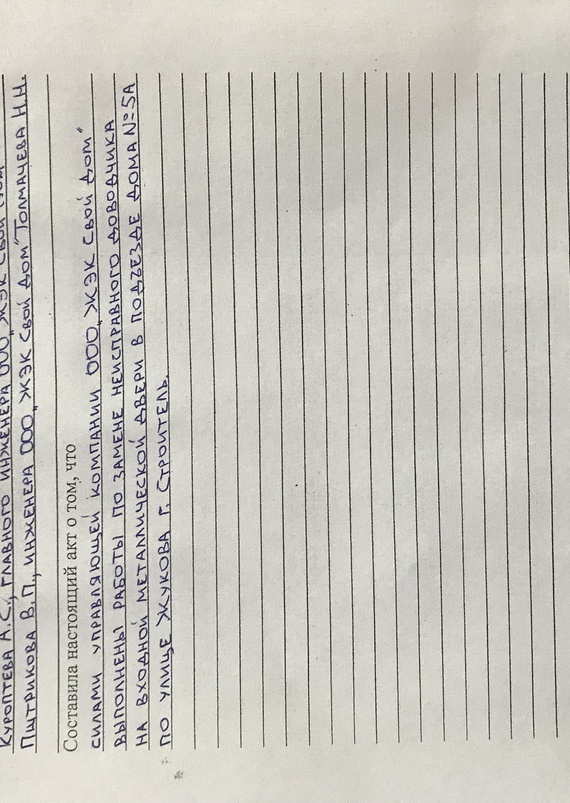 Куроптева А.С., главного инженера ООО „ЖЭК Свой дом"
Пштрикова В.П., инженера ООО „ЖЭК Свой дом" Толмачева Н.Н.
Составила настоящий акт о том, что
силами управляющей компании ООО „ЖЭК Свой дом"
выполнены работы по замене неисправного доводчика
на входной металлической двери в подъезде дома №5А
по улице Жукова г. Строитель.